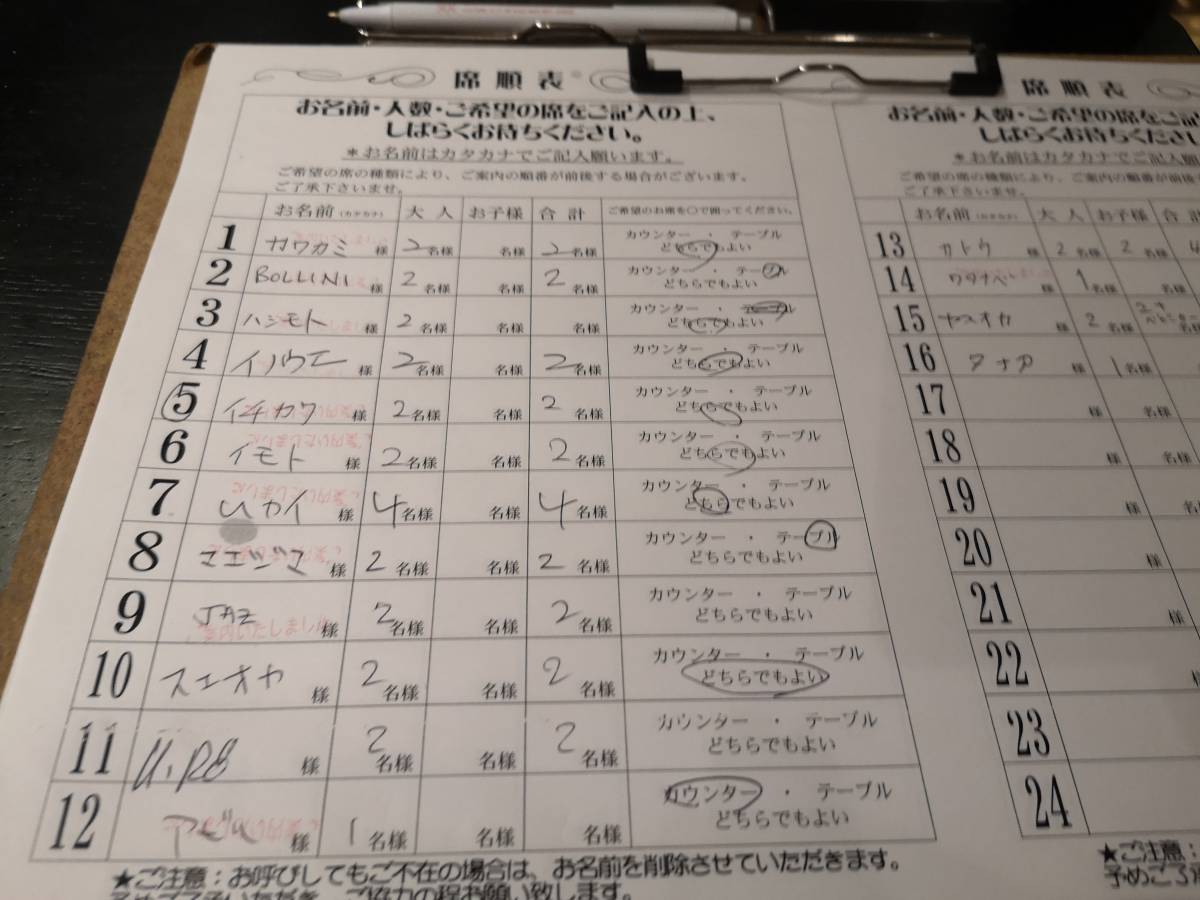 席順表
お名前・人数・ご希望の席をご記入の上、
しばらくお待ちください。
＊お名前はカタカナでご記入願います。
ご希望の席の種類により、ご案内の順番が前後する場合がございます。
ご了承下さいませ。
お名前（カタカナ） 大人 お子様 合計 ご希望のお席を〇で囲ってください。
1 カワカミ 様 2名様 名様 2名様 カウンター ・ テーブル
どちらでもよい
2 BOLLINI 様 2名様 名様 2名様 カウンター ・ テーブル
どちらでもよい
3 ハシモト 様 2名様 名様 名様 カウンター ・ テーブル
どちらでもよい
4 イノウエ 様 2名様 名様 2名様 カウンター ・ テーブル
どちらでもよい
5 イチカワ 様 2名様 名様 2名様 カウンター ・ テーブル
どちらでもよい
6 イモト 様 2名様 名様 2名様 カウンター ・ テーブル
どちらでもよい
7 カイ 様 4名様 名様 4名様 カウンター ・ テーブル
どちらでもよい
8 マエジマ 様 2名様 名様 2名様 カウンター ・ テーブル
どちらでもよい
9 JAZ 様 2名様 名様 2名様 カウンター ・ テーブル
どちらでもよい
10 スエオカ 様 2名様 名様 2名様 カウンター ・ テーブル
どちらでもよい
11 様 2名様 名様 2名様 カウンター ・ テーブル
どちらでもよい
12 様 1名様 名様 名様 カウンター ・ テーブル
どちらでもよい
★ご注意：お呼びしてもご不在の場合は、お名前を削除させていただきます。
予めご了承いただき、ご協力の程お願い致します。
席順表
お名前・人数・ご希望の席をご記
しばらくお待ちください
＊お名前はカタカナでご記入願
ご希望の席の種類により、ご案内の順番が前後する
ご了承下さいませ。
お名前（カタカナ） 大人 お子様 合計
13 カトウ 様 2名様 2名様 4
14 ワタナベ 様 1名様 名様
15 ヤスオカ 様 2名様
16 タナカ 様 1名様 名様
17 様 名様 名様
18 様 名様
19 様 名
20 様
21 様
22
23
24
★ご注意：
予めご了承